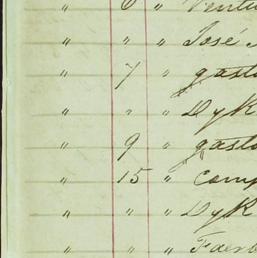 " 6 " Ventu
" " " José
" 7 " gasto
" " " Dyk
" 9 " gasto
" 15 " comp
" " " Dyk
" " " Faer